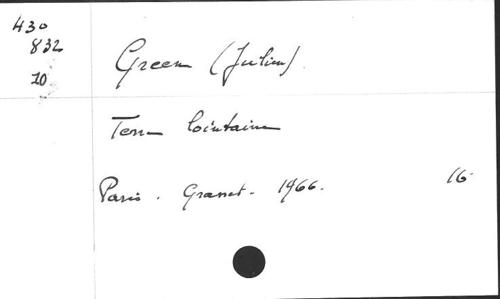 430
832
10
Green (Julien).
Terre lointaine
Paris. Grasset. 1966. 16